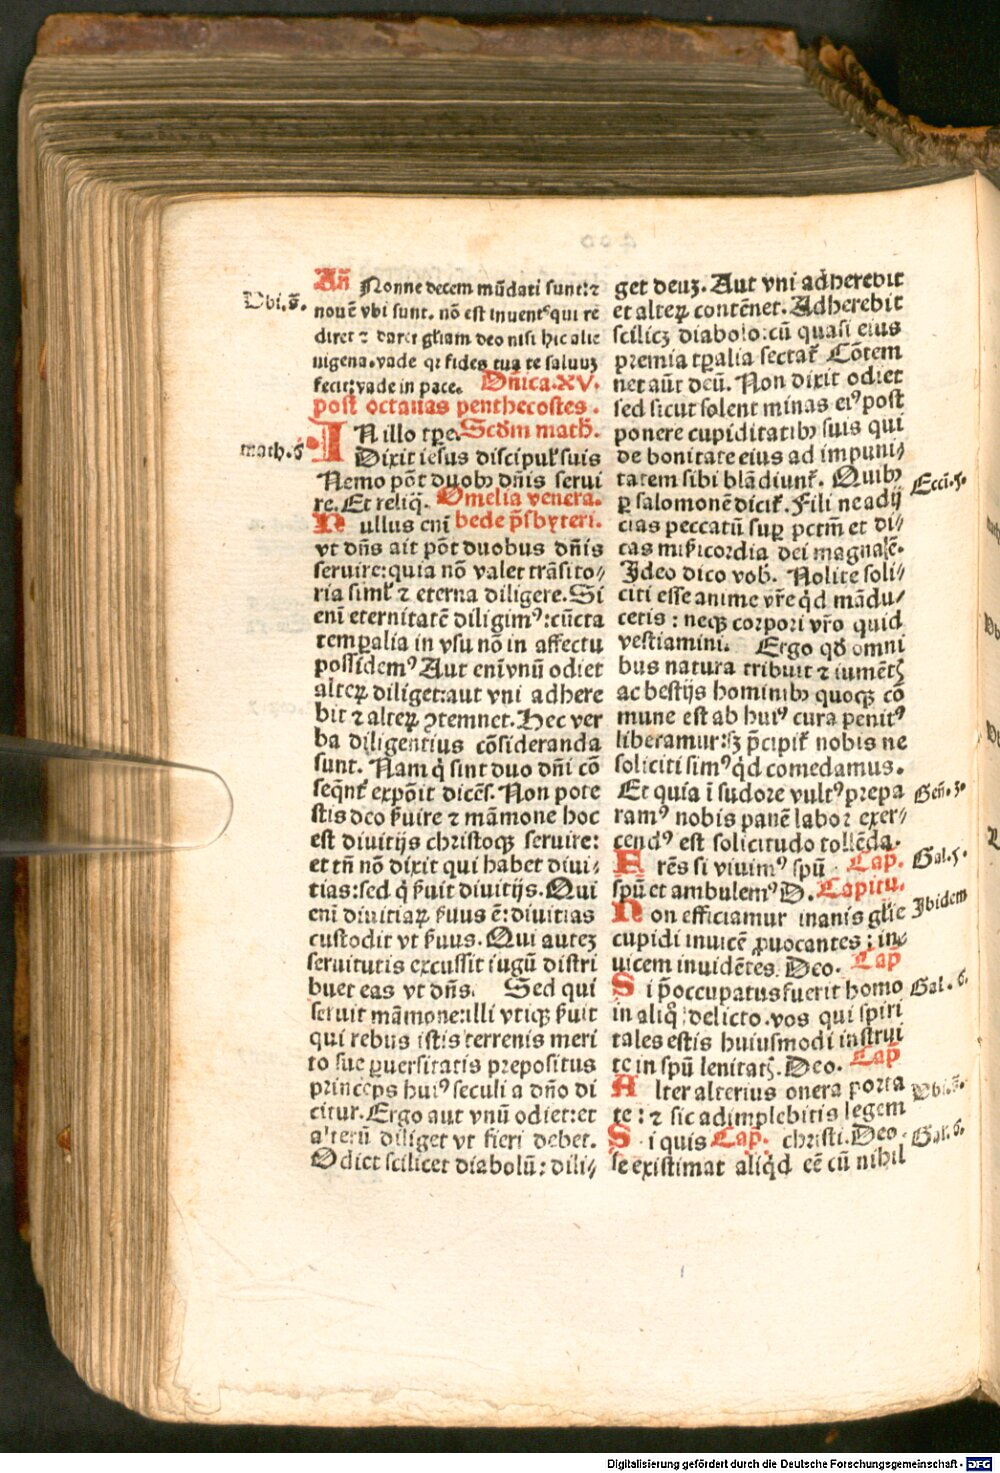 Añ Nonne decem mūdati sunt: ⁊
Vbi.s̄.
nouē vbi sunt. nō est inuentꝰ qui re
diret ⁊ daret gl̄iam deo nisi hic alie
nigena. vade qr fides tua te saluuꝫ
fecit: vade in pace. Dñica.XV.
post octauas penthecostes.
math.6
IN illo tp̄e. Scd̄m math̄.
Dixit iesus discipul̄ suis
Nemo pōt duobꝰ dñis serui
re. Et reliq̄. Omelia venera.
Nullus em̄ bede p̄sbyteri.
vt dñs ait pōt duobus dñis
seruire: quia nō valet trāsito⸗
ria siml̄ ⁊ eterna diligere. Si
em̄ eternitatē diligimꝰ: cūcta
temꝑalia in vsu nō in affectu
possidemꝰ Aut em̄ vnū odiet
alteꝝ diliget: aut vni adhere
bit ⁊ alteꝝ ꝯtemnet. Hec ver
ba diligentius cōsideranda
sunt. Nam q̇ sint duo dn̄i cō
seq̄nt̄ expōit dicēs. Non pote
stis deo ẜuire ⁊ māmone hoc
est diuitijs christoqꝫ seruire:
et tn̄ nō dixit qui habet diui⸗
tias: sed q̇ ẜuit diuitijs. Qui
em̄ diuitiaꝝ ẜuus ē: diuitias
custodit vt ẜuus. Qui auteꝫ
seruitutis excussit iugū distri
buet eas vt dñs. Sed qui
seruit māmone: illi vtiqꝫ ẜuit
qui rebus istis terrenis meri
to sue ꝑuersitatis prepositus
princeps huiꝰ seculi a dño di
citur. Ergo aut vnū odiet: et
alterū diliget vt fieri debet.
Odiet scilicet diabolū: dili⸗
get deuꝫ. Aut vni adherebit
et alteꝝ contēnet. Adherebit
scilicꝫ diabolo: cū quasi eius
premia tꝑalia sectat̄ Cōtem
net aūt deū. Non dixit odiet
sed sicut solent minas eiꝰ post
ponere cupiditatibꝰ suis qui
de bonitate eius ad impuni⸗
tatem sibi blādiunt̄. Quibꝰ
Ecci.5.
ꝑ salomonē dicit̄. Fili ne adij
cias peccatū suꝑ pctm̄ et di⸗
cas mi̅ẜicordia dei magna ē.
Ideo dico vob̄. Nolite soli⸗
citi esse anime vr̄e qd̄ mādu⸗
cetis: neqꝫ corpori vr̄o quid
vestiamini. Ergo qd̄ omni
bus natura tribuit ⁊ iumētꝭ
ac bestijs hominibꝰ quoqꝫ cō
mune est ab huiꝰ cura penitꝰ
liberamur: sꝫ p̄cipit̄ nobis ne
soliciti simꝰ qd̄ comedamus.
Et quia ī sudore vultꝰ prepa
Geñ.3.
ramꝰ nobis panē labor exer⸗
cendꝰ est solicitudo tollēda.
Frēs si viuimꝰ spū Cap.
Gal.5.
spū et ambulemꝰ D. Capitu.
Non efficiamur inanis gl̄ie
Ibidem
cupidi inuicē ꝓuocantes: in⸗
uicem inuidētes. Deo. Cap
Si p̄occupatus fuerit homo
Gal.6.
in aliq̇ delicto. vos qui spiri
tales estis huiusmodi instrui
te in spū lenitatꝭ. Deo. Cap
Alter alterius onera porta
Vbi.s̄.
te: ⁊ sic adimplebitis legem
Si quis Cap. christi. Deo.
Gal.6.
se existimat aliqd̄ eē cū nihil
Digitalisierung gefördert durch die Deutsche Forschungsgemeinschaft - DFG